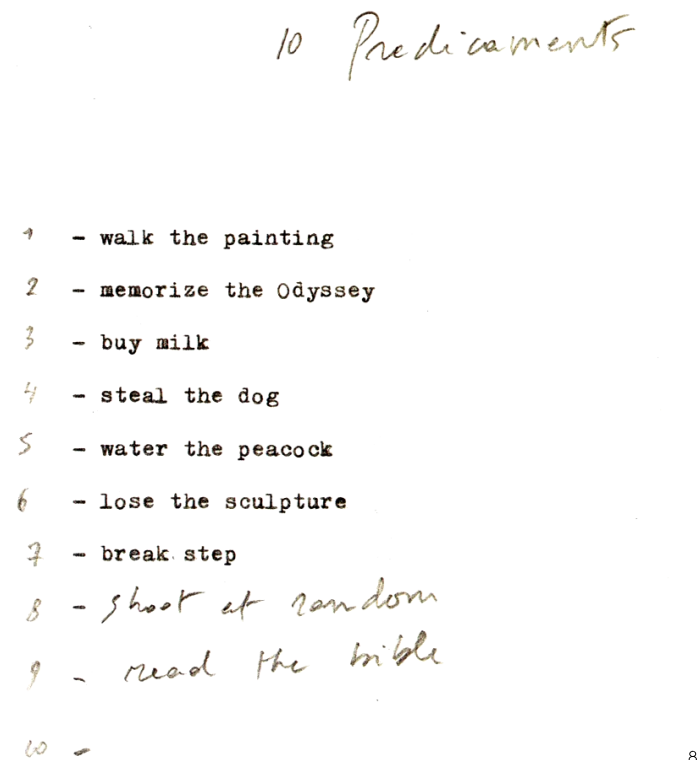 10 Predicaments
1 - walk the painting
2 - memorize the Odyssey
3 - buy milk
4 - steal the dog
5 - water the peacock
6 - lose the sculpture
7 - break step
8 - shoot at random
9 - read the bible
10 -
8